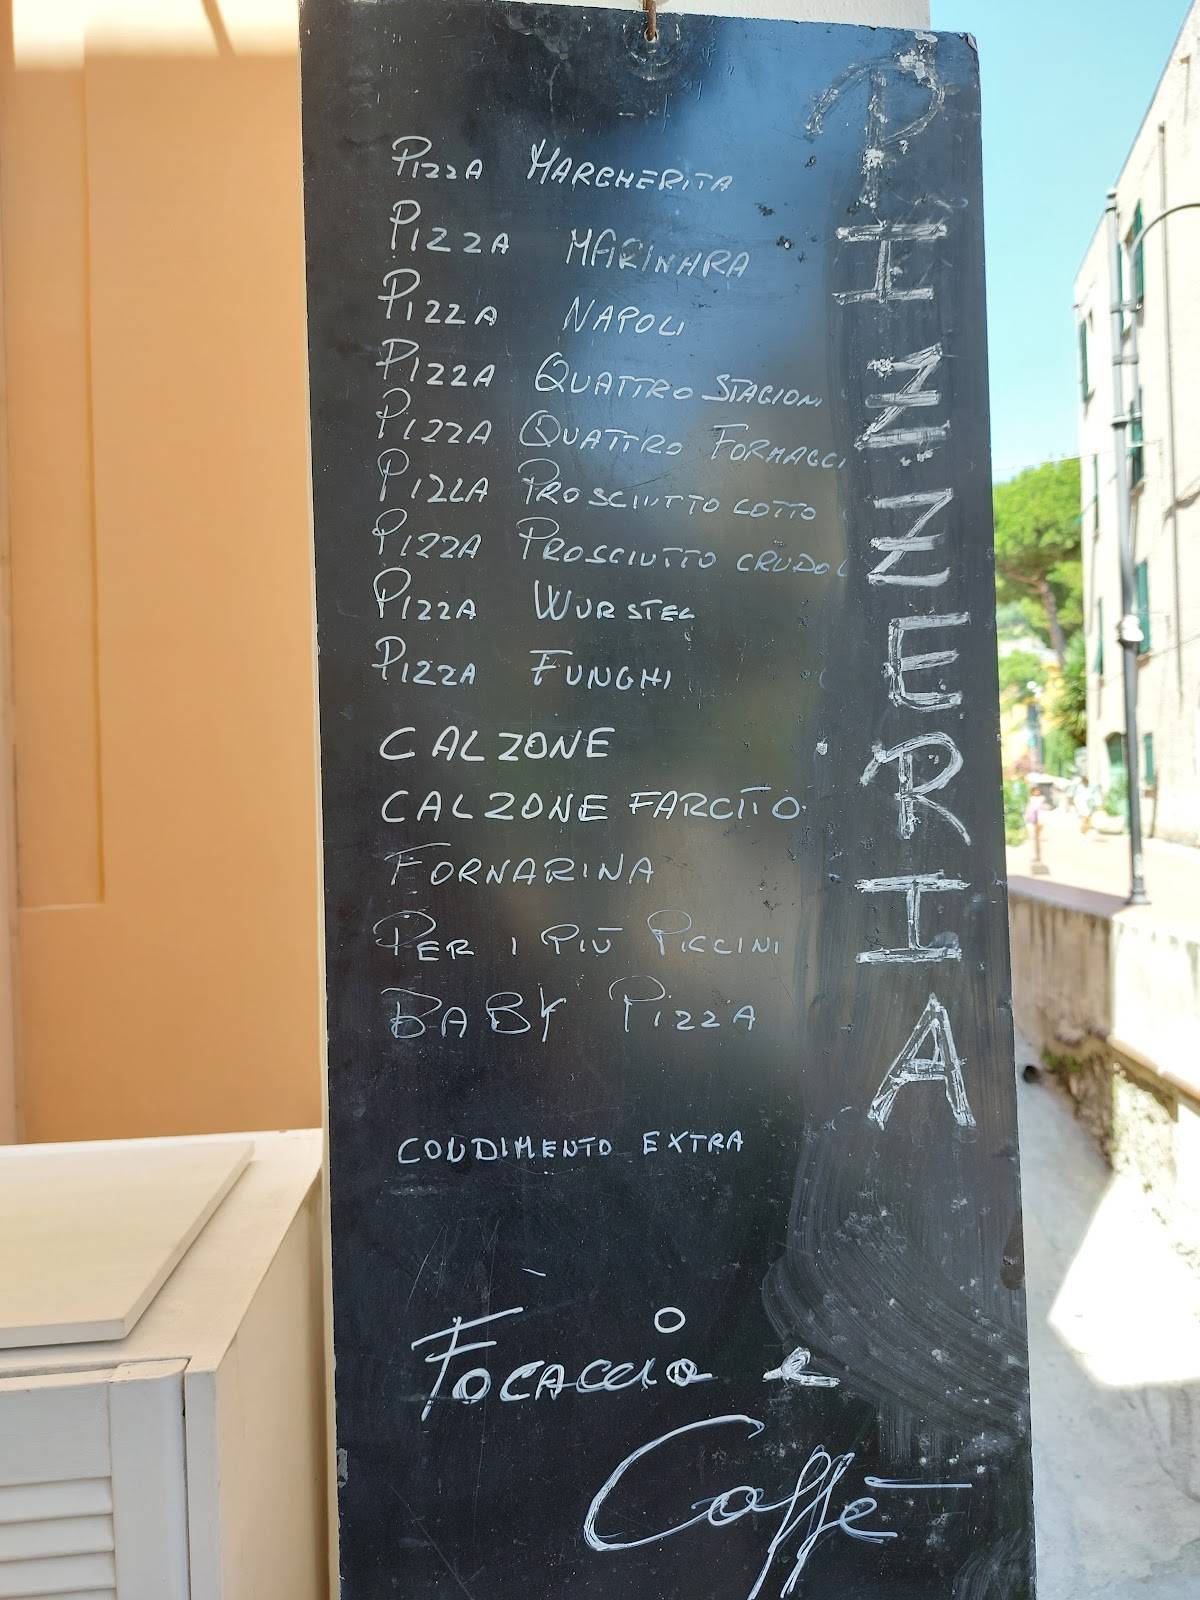 PIZZA MARGHERITA
PIZZA MARINARA
PIZZA NAPOLI
PIZZA QUATTRO STAGIONI
PIZZA QUATTRO FORMAGGI
PIZZA PROSCIUTTO COTTO
PIZZA PROSCIUTTO CRUDO
PIZZA WURSTEL
PIZZA FUNGHI
CALZONE
CALZONE FARCITO
FORNARINA
PER I PIÙ PICCINI
BABY PIZZA
CONDIMENTO EXTRA
Focaccia e
Caffè
PIZZERIA